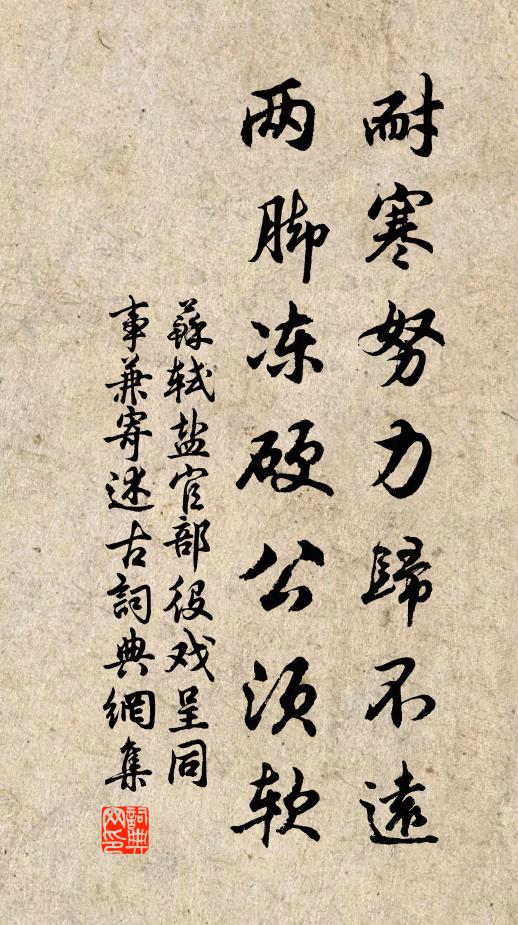 耐寒努力歸不遠
两脚冻硬公须软
蘇轼盐官部役戏呈同
事兼寄述古詞典網集
詞典网印